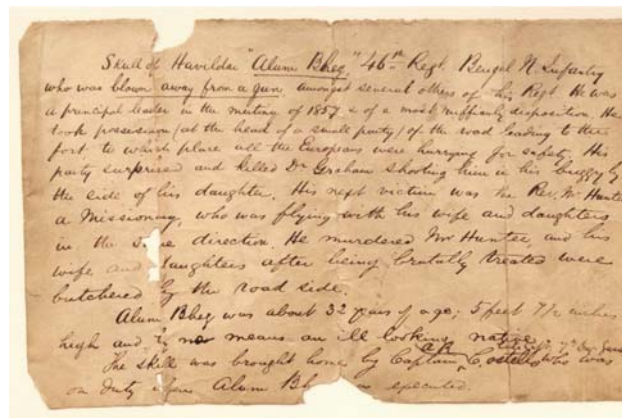 Skull of Havildar "Alum Bheg," 46th Regt. Bengal N. Infantry
who was blown away from a gun, amongst several others of his Regt. He was
a principal leader in the mutiny of 1857 & of a most ruffianly disposition. He
took possession (at the head of a small party) of the road leading to the
fort to which place all the Europeans were hurrying for safety. His
party surprised and killed Dr Graham shooting him in his buggy by
the side of his daughter. His next victim was the Rev. Mr Hunter
a Missionary, who was flying with his wife and daughters
in the same direction. He murdered Mr Hunter, and his
wife and daughters after being brutally treated were
butchered by the road side.
Alum Bheg was about 32 years of age; 5 feet 7 1/2 inches
high and by no means an ill looking native.
The skull was brought home by Captain A.R. Costello, who was
on duty when Alum Bheg was executed.